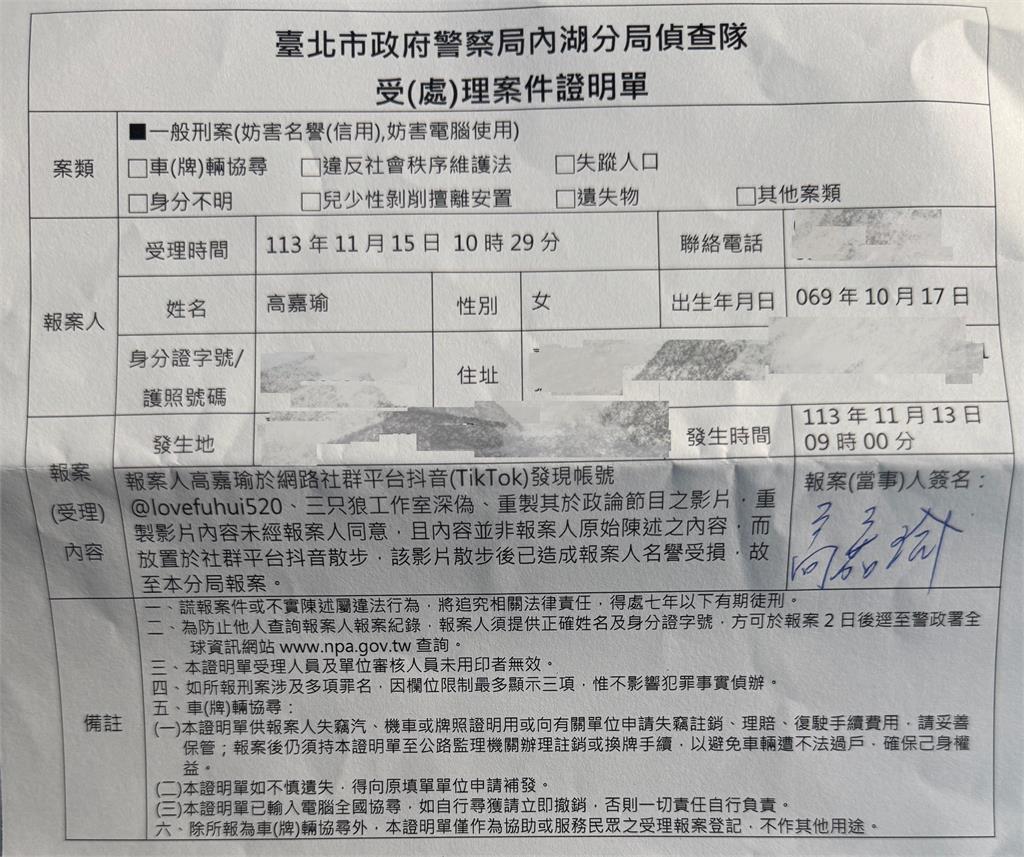 臺北市政府警察局內湖分局偵查隊
受(處)理案件證明單
案類
■一般刑案(妨害名譽(信用),妨害電腦使用)
□車(牌)輛協尋 □違反社會秩序維護法 □失蹤人口
□身分不明 □兒少性剝削擅離安置 □遺失物 □其他案類
報案人
受理時間 113 年 11 月 15 日 10 時 29 分 聯絡電話
姓名 高嘉瑜 性別 女 出生年月日 069 年 10 月 17 日
身分證字號/
護照號碼
住址
發生地 發生時間 113 年 11 月 13 日
09 時 00 分
報案
(受理)
內容
報案人高嘉瑜於網路社群平台抖音(TikTok)發現帳號
@lovefuhui520、三只狼工作室深偽、重製其於政論節目之影片，重
製影片內容未經報案人同意，且內容並非報案人原始陳述之內容，而
放置於社群平台抖音散步，該影片散步後已造成報案人名譽受損，故
至本分局報案。
報案(當事)人簽名：
高嘉瑜
備註
一、謊報案件或不實陳述屬違法行為，將追究相關法律責任，得處七年以下有期徒刑。
二、為防止他人查詢報案人報案紀錄，報案人須提供正確姓名及身分證字號，方可於報案 2 日後逕至警政署全
球資訊網站 www.npa.gov.tw 查詢。
三、本證明單受理人員及單位審核人員未用印者無效。
四、如所報刑案涉及多項罪名，因欄位限制最多顯示三項，惟不影響犯罪事實偵辦。
五、車(牌)輛協尋：
(一)本證明單供報案人失竊汽、機車或牌照證明用或向有關單位申請失竊註銷、理賠、復駛手續費用，請妥善
保管；報案後仍須持本證明單至公路監理機關辦理註銷或換牌手續，以避免車輛遭不法過戶，確保己身權
益。
(二)本證明單如不慎遺失，得向原填單單位申請補發。
(三)本證明單已輸入電腦全國協尋，如自行尋獲請立即撤銷，否則一切責任自行負責。
六、除所報為車(牌)輛協尋外，本證明單僅作為協助或服務民眾之受理報案登記，不作其他用途。